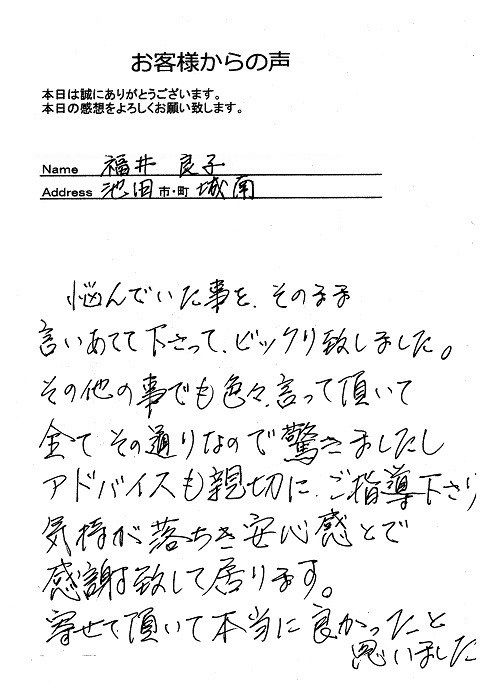 お客様からの声
本日は誠にありがとうございます。
本日の感想をよろしくお願い致します。
Name 福井 良子
Address 池田 市・町 城南
悩んでいた事を、そのまま
言いあてて下さって、ビックリ致しました。
その他の事でも色々、言って頂いて
全てその通りなので驚きましたし
アドバイスも親切に、ご指導下さり
気持が落ちき安心感とで
感謝致して居ります。
寄せて頂いて本当に良かったと
思いました